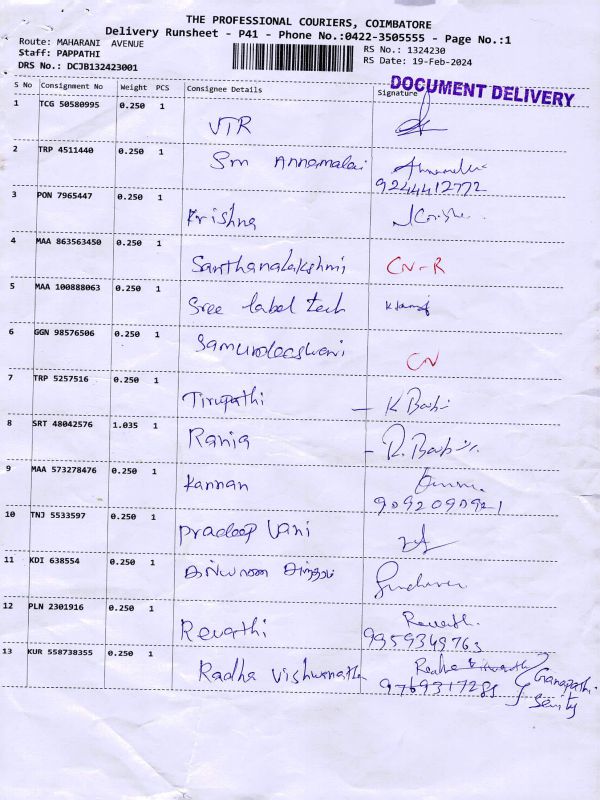 THE PROFESSIONAL COURIERS, COIMBATORE
Delivery Runsheet - P41 - Phone No.:0422-3505555 - Page No.:1
Route: MAHARANI AVENUE
RS No.: 1324230
Staff: PAPPATHI
RS Date: 19-Feb-2024
DRS No.: DCJB132423001
DOCUMENT DELIVERY
S No Consignment No Weight PCS Consignee Details Signature
1 TCG 50580995 0.250 1
VTR
2 TRP 4511440 0.250 1
Sm Annamalai
9244412772
3 PON 7965447 0.250 1
Krishna
4 MAA 863563450 0.250 1
Santhanalakshmi CN-R
5 MAA 100888063 0.250 1
Sree label tech
6 GGN 98576506 0.250 1
Samundeeswari CN
7 TRP 5257516 0.250 1
Tirupathi - K
8 SRT 48042576 1.035 1
Rania - R.
9 MAA 573278476 0.250 1
Kannan
9092090921
10 TNJ 5533597 0.250 1
Pradeep Vani
11 KDI 638554 0.250 1
12 PLN 2301916 0.250 1
Revathi Revathi
9959349763
13 KUR 558738355 0.250 1
Radha Vishwanath Radha
9769317281
Ganapathi